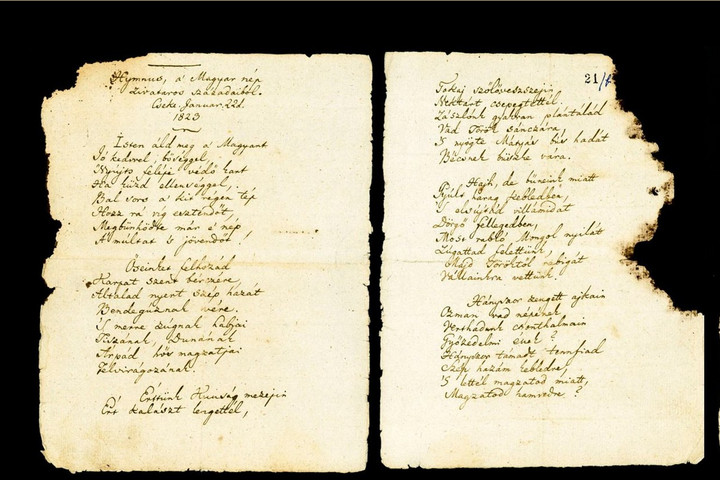 Hymnus, a' Magyar nép
zivataros századaiból.
Cseke. Januar. 22d.
1823
Isten áldd meg a' Magyart
Jó kedvvel, bőséggel,
Nyújts feléje védő kart
Ha küzd ellenséggel,
Bal sors a' kit régen tép
Hozz rá víg esztendőt,
Megbűnhödte már e' nép
A' multat 's jövendőt!
Őseinket felhozád
Karpat szent bérczére,
Általad nyert szép hazát
Bendegúznak vére.
'S merre zúgnak habjai
Tiszának, Dunának
Árpád hős magzatjai
Felvirágozának.
Értünk Kunság mezejin
Ért kalászt lengettél,
21/1
Tokaj szőlővesszejin
Nektárt csepegtettél.
Zászlónk gyakran plántálád
Vad Török sánczára,
'S nyögte Mátyás bús hadát
Bécsnek büszke vára.
Hajh, de bűneink miatt
Gyúlt harag kebledben,
'S elsújtád villámidat
Dörgő fellegedben,
Most rabló Mongol nyilát
Zúgattad felettünk,
Majd Töröktől rabigát
Vállainkra vettünk.
Hányszor zengett ajkain
Ozman vad népének
Vert hadunk csonthalmain
Győzedelmi ének?
Hányszor támadt tenn fiad
Szép hazám kebledre,
'S lettél magzatod miatt,
Magzatod hamvvedre?